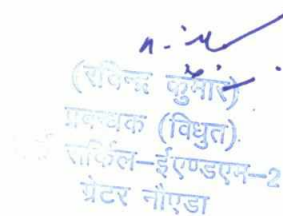 (रविन्द्र कुमार)
प्रबन्धक (विधुत)
सर्किल-ईएण्डएम-2
ग्रेटर नौएडा